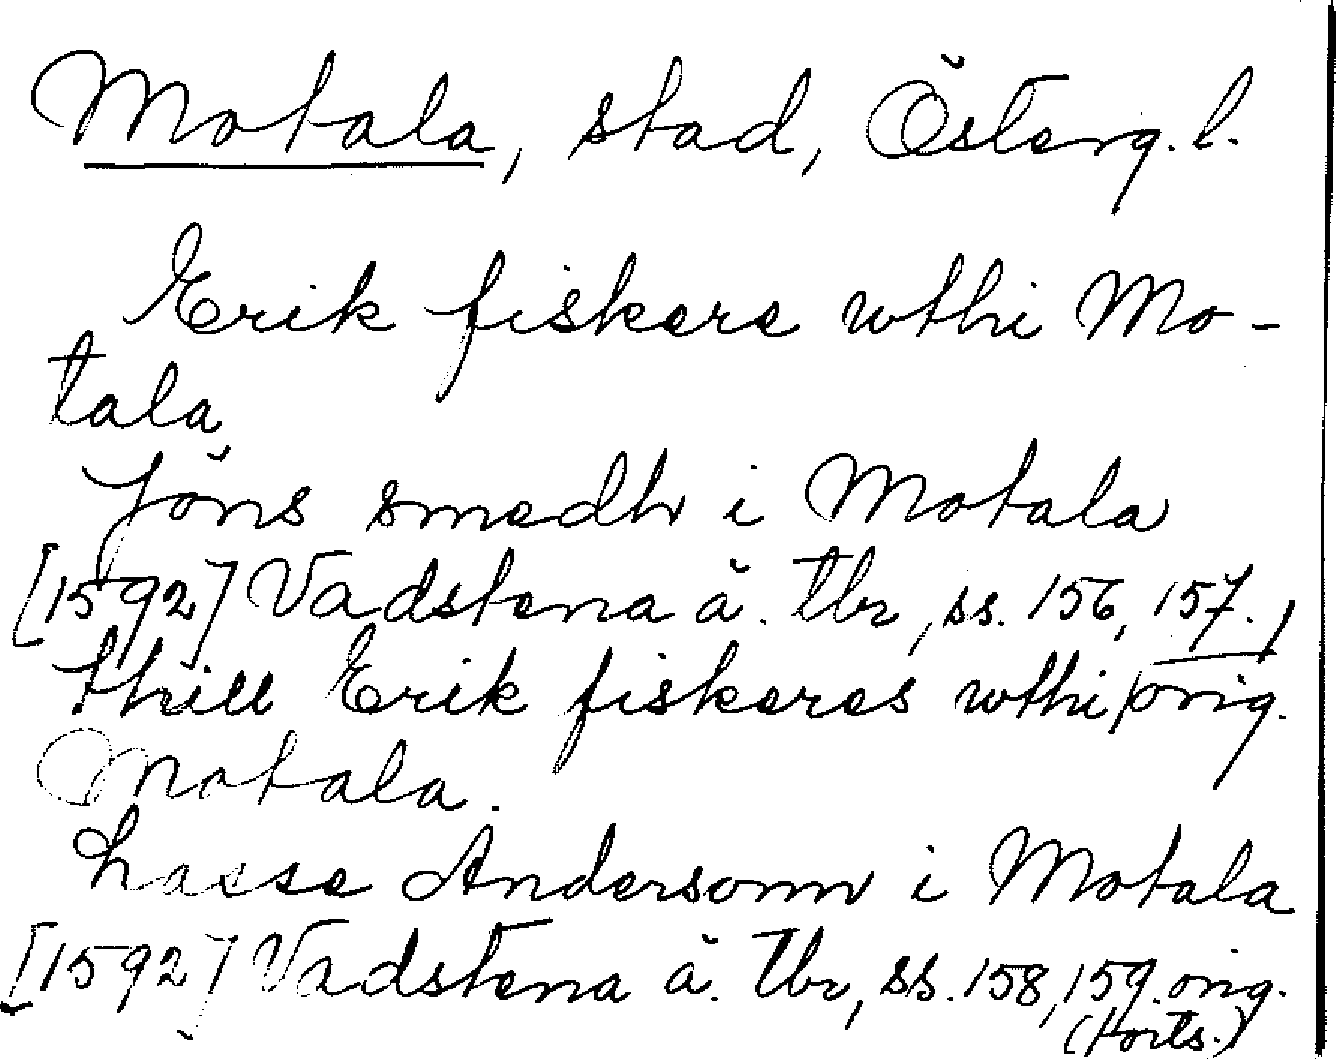 Motala, stad, Österg. l.
Erik fiskere wthi Mo-
tala
Jöns smedh i Motala
[1592] Vadstena ä. tbr, ss. 156, 157.,
thill Erik fiskeres wthi orig.
Motala.
Lasse Andersonn i Motala
[1592] Vadstena ä. tbr, ss. 158, 159. orig.
(Forts.)